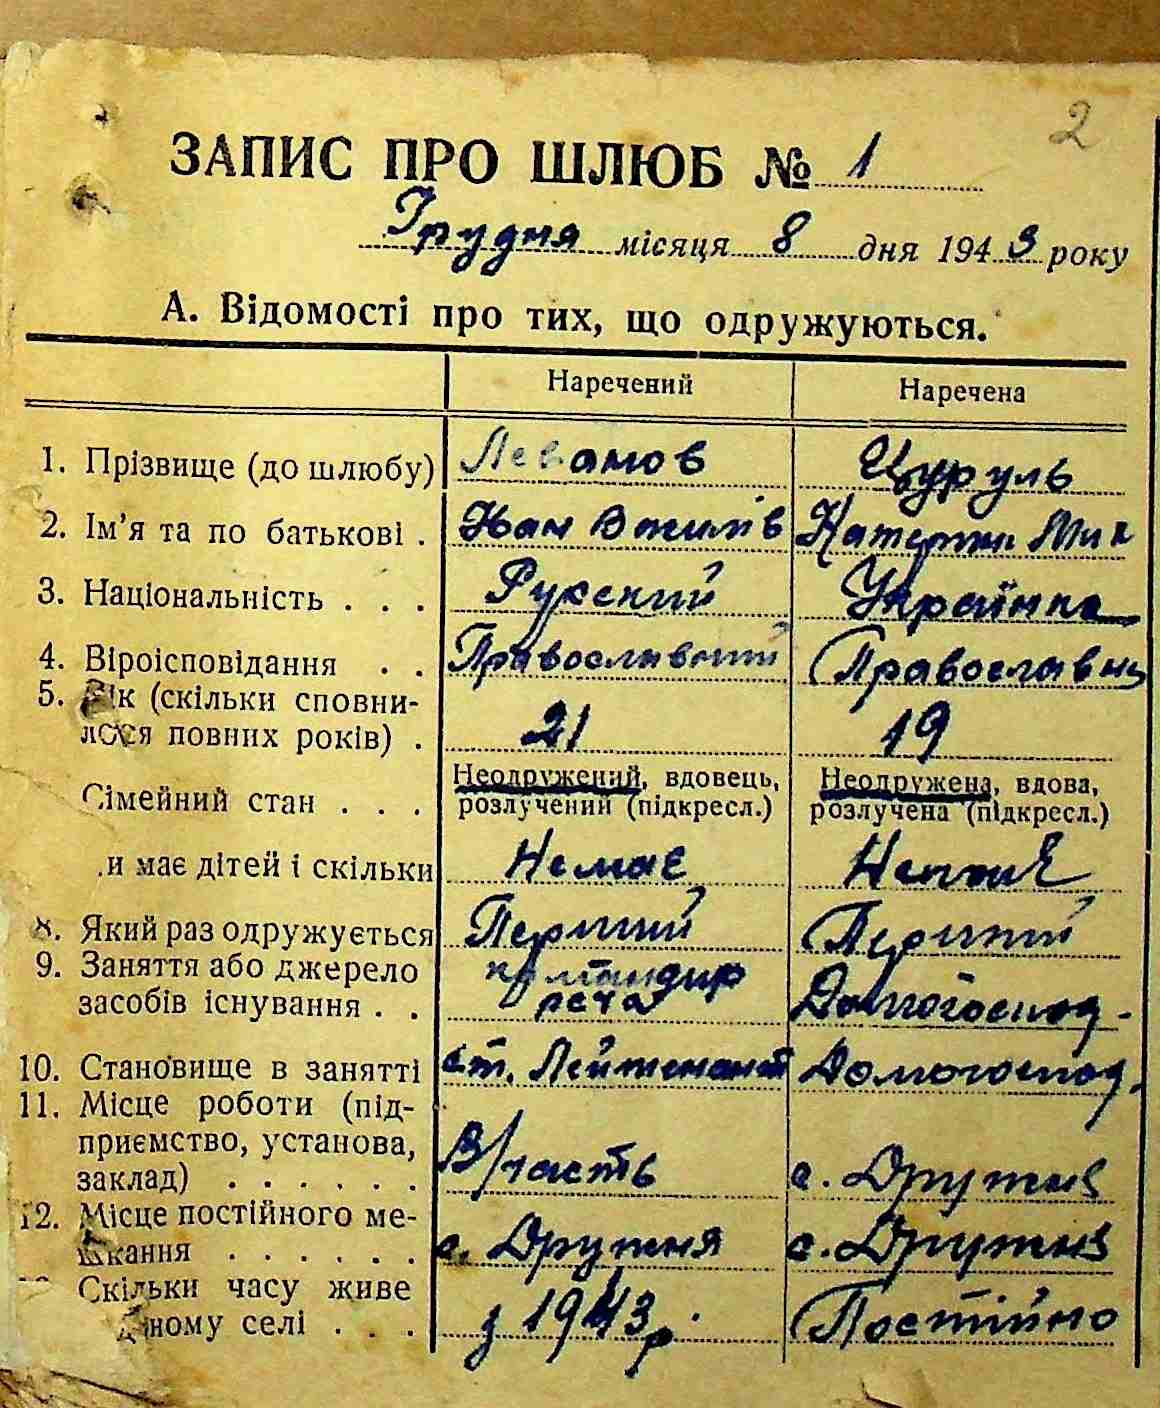 2
ЗАПИС ПРО ШЛЮБ № 1
Грудня місяця 8 дня 1943 року
А. Відомості про тих, що одружуються.
Наречений Наречена
1. Прізвище (до шлюбу) Леванов Цуруль
2. Ім’я та по батькові . Иван Василів Катерин Мик
3. Національність . . . Русский Українка
4. Віроісповідання . . Православний Православн
5. Вік (скільки сповни-
лося повних років) . 21 19
Сімейний стан . . . Неодружений, вдовець, Неодружена, вдова,
розлучений (підкресл.) розлучена (підкресл.)
и має дітей і скільки Немає Немає
8. Який раз одружується Перший Перший
9. Заняття або джерело командир
засобів існування . . Домогоспод.
10. Становище в занятті ст. Лейтенант Домогоспод.
11. Місце роботи (під-
приємство, установа,
заклад) . . . . . . В/часть с. Дружня
12. Місце постійного ме-
шкання . . . . . . с. Дружня с. Дружня
Скільки часу живе
даному селі . . . з 1943 р. Постійно